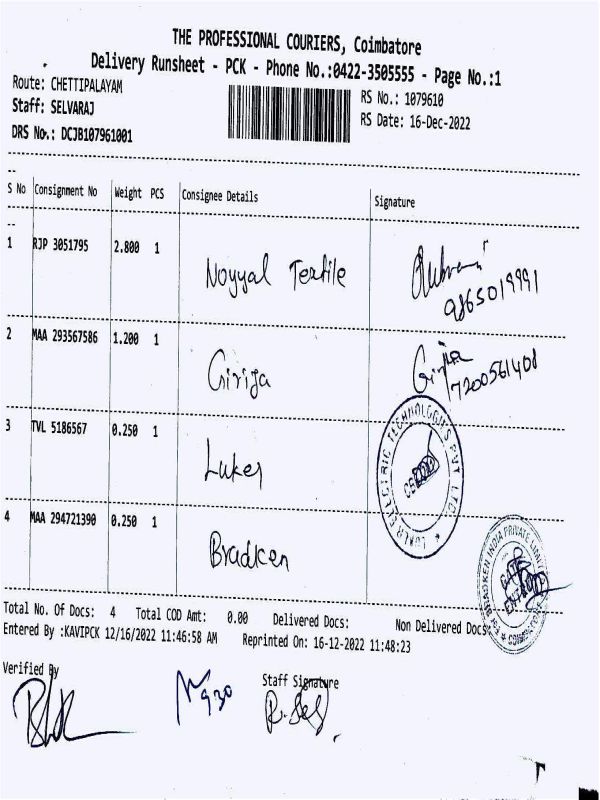 THE PROFESSIONAL COURIERS, Coimbatore
Delivery Runsheet - PCK - Phone No.:0422-3505555 - Page No.:1
Route: CHETTIPALAYAM
Staff: SELVARAJ
DRS No.: DCJB107961001
RS No.: 1079610
RS Date: 16-Dec-2022
S No Consignment No Weight PCS Consignee Details Signature
1 RJP 3051795 2.800 1 Noyyal Textile
9865019991
2 MAA 293567586 1.200 1 Girija Girija
7200561408
3 TVL 5186567 0.250 1 Luker
LUKER ELECTRIC TECHNOLOGIES PVT LTD
4 MAA 294721390 0.250 1 Bradken
For BRADKEN INDIA PRIVATE LIMITED
GATE
ENTRY
Total No. Of Docs: 4 Total COD Amt: 0.00 Delivered Docs: Non Delivered Docs:
Entered By :KAVIPCK 12/16/2022 11:46:58 AM Reprinted On: 16-12-2022 11:48:23
Verified By
Staff Signature
930